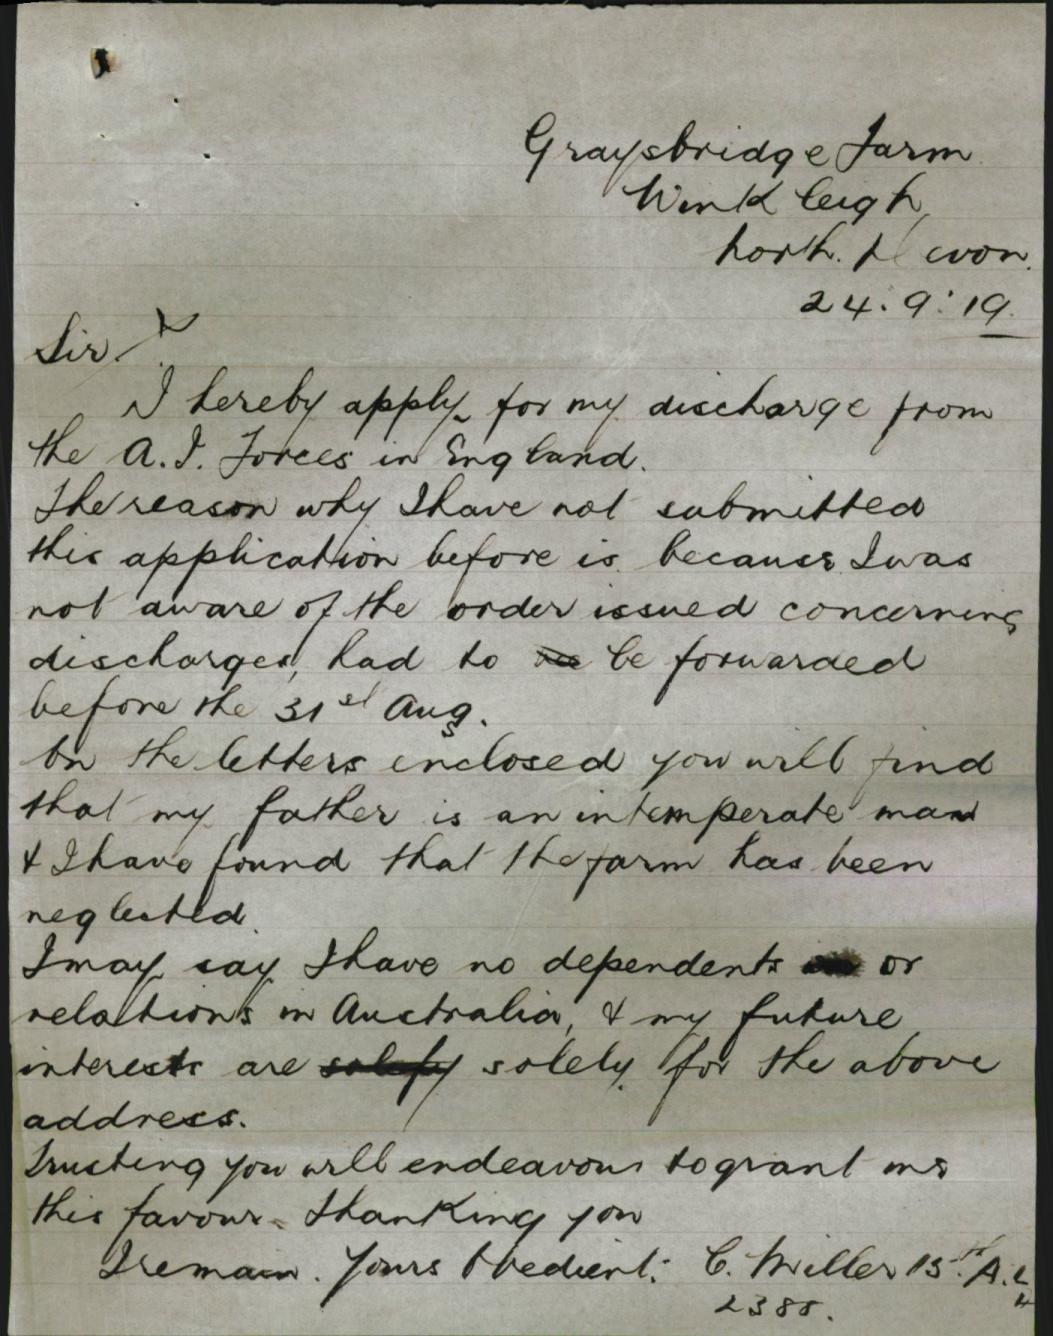 Graysbridge Farm
Winkleigh,
North. Devon.
24.9.19.
Sir
I hereby apply for my discharge from
the A.I. Forces in England.
The reason why I have not submitted
this application before is because I was
not aware of the order issued concerning
discharges, had to be forwarded
before the 31st Aug.
On the letters enclosed you will find
that my father is an intemperate man
& I have found that the farm has been
neglected.
I may say I have no dependents or
relations in Australia, & my future
interests are solely solely for the above
address.
Trusting you will endeavour to grant me
this favour. Thanking you
I remain. Yours Obedient. C. Miller 13th A.L
2388.